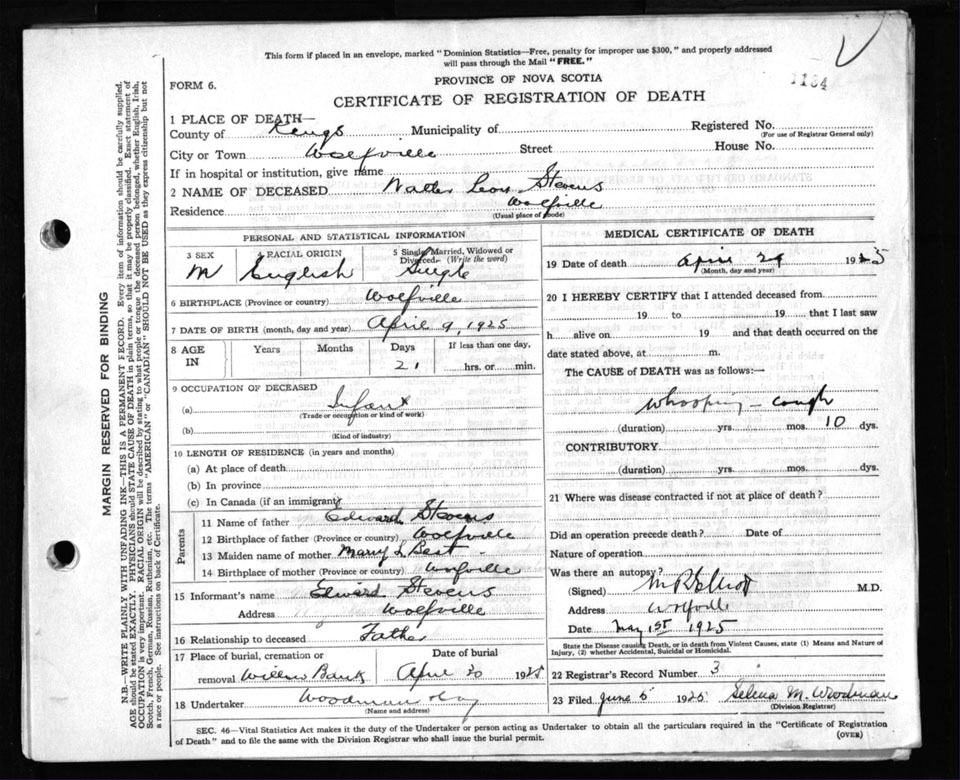 This form if placed in an envelope, marked "Dominion Statistics—Free, penalty for improper use $300," and properly addressed
will pass through the Mail "FREE."
1184
FORM 6.
PROVINCE OF NOVA SCOTIA
CERTIFICATE OF REGISTRATION OF DEATH
MARGIN RESERVED FOR BINDING
N.B.—WRITE PLAINLY WITH UNFADING INK—THIS IS A PERMANENT RECORD. Every item of information should be carefully supplied.
AGE should be stated EXACTLY. PHYSICIANS should STATE CAUSE OF DEATH in plain terms, so that it may be properly classified. Exact statement of
OCCUPATION is very important. RACIAL ORIGIN will be described by stating to what people or tongue the deceased person belonged, whether English, Irish,
Scotch, French, German, Russian, Ruthenian, etc. The terms "AMERICAN" or "CANADIAN" SHOULD NOT BE USED as they express citizenship but not
a race or people. See instructions on back of Certificate.
1 PLACE OF DEATH—
County of Kings Municipality of Registered No.
(For use of Registrar General only)
City or Town Wolfville Street House No.
If in hospital or institution, give name
2 NAME OF DECEASED Walter Leon Stevens
Residence Wolfville
(Usual place of abode)
PERSONAL AND STATISTICAL INFORMATION
3 SEX M
4 RACIAL ORIGIN English
5 Single, Married, Widowed or Divorced (Write the word) Single
6 BIRTHPLACE (Province or country) Wolfville
7 DATE OF BIRTH (month, day and year) April 9, 1925
8 AGE IN Years Months Days If less than one day,
21 hrs. or min.
9 OCCUPATION OF DECEASED
(a) Infant
(Trade or occupation or kind of work)
(b)
(Kind of industry)
10 LENGTH OF RESIDENCE (in years and months)
(a) At place of death
(b) In province
(c) In Canada (if an immigrant)
Parents
11 Name of father Edward Stevens
12 Birthplace of father (Province or country) Wolfville
13 Maiden name of mother Mary L Best
14 Birthplace of mother (Province or country) Wolfville
15 Informant's name Edward Stevens
Address Wolfville
16 Relationship to deceased Father
17 Place of burial, cremation or Date of burial
removal Willow Bank April 30 1925
18 Undertaker Woodman
(Name and address)
MEDICAL CERTIFICATE OF DEATH
19 Date of death April 29 1925
(Month, day and year)
20 I HEREBY CERTIFY that I attended deceased from
19 to 19 that I last saw
h alive on 19 and that death occurred on the
date stated above, at m.
The CAUSE of DEATH was as follows:—
Whooping-cough
(duration) yrs. mos. 10 dys.
CONTRIBUTORY
(duration) yrs. mos. dys.
21 Where was disease contracted if not at place of death?
Did an operation precede death? Date of
Nature of operation
Was there an autopsy?
(Signed) M R Elliott M.D.
Address Wolfville
Date May 1st 1925
State the Disease causing Death, or in death from Violent Causes, state (1) Means and Nature of
Injury, (2) whether Accidental, Suicidal or Homicidal.
22 Registrar's Record Number 3
23 Filed June 5 1925 Selena M. Woodman
(Division Registrar)
SEC. 46—Vital Statistics Act makes it the duty of the Undertaker or person acting as Undertaker to obtain all the particulars required in the "Certificate of Registration
of Death" and to file the same with the Division Registrar who shall issue the burial permit.
(OVER)